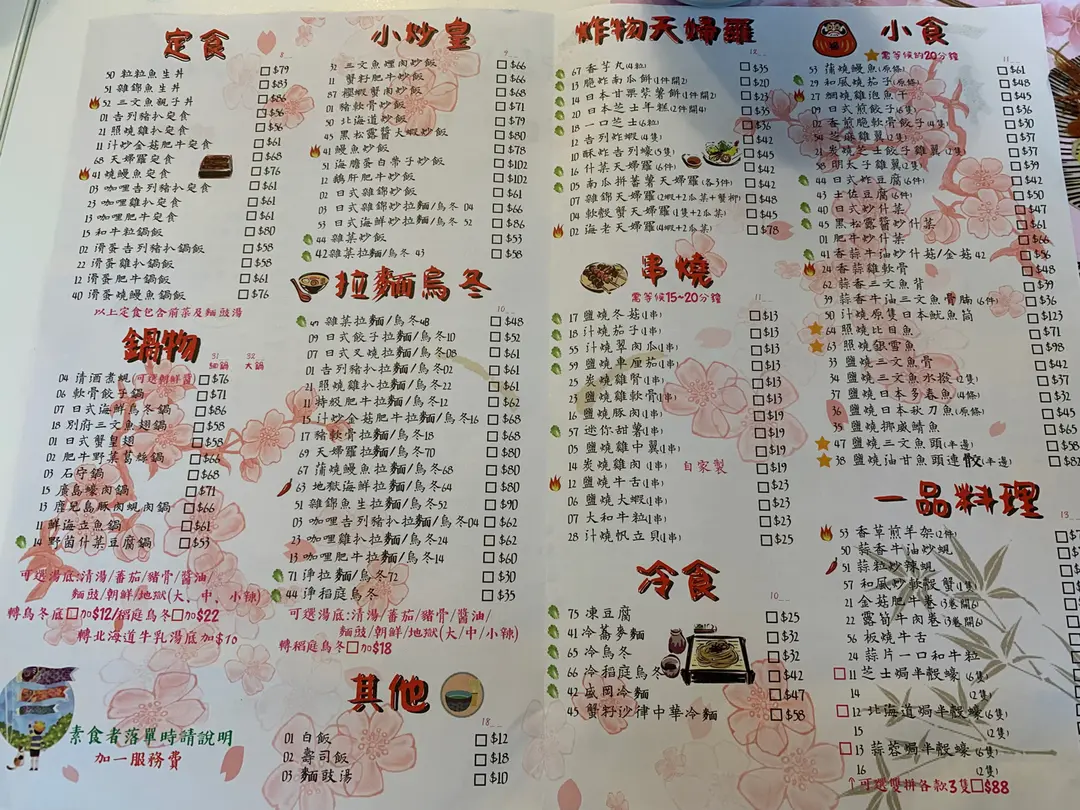 定食
8
50 粒粒魚生丼 $79
51 雜錦魚生丼 $83
52 三文魚親子丼 $86
01 吉列豬扒定食 $56
21 照燒雞扒定食 $56
11 汁炒金菇肥牛定食 $61
68 天婦羅定食 $68
41 燒鰻魚定食 $76
03 咖哩吉列豬扒定食 $61
23 咖哩雞扒定食 $61
13 咖哩肥牛定食 $61
15 和牛粒鍋飯 $80
02 滑蛋吉列豬扒鍋飯 $58
22 滑蛋雞扒鍋飯 $58
12 滑蛋肥牛鍋飯 $61
40 滑蛋燒鰻魚鍋飯 $76
以上定食包含前菜及麵豉湯
鍋物
31 32
細鍋 大鍋
04 清酒煮蜆(可選朝鮮醬) $76
06 軟骨餃子鍋 $71
07 日式海鮮烏冬鍋 $86
18 別府三文魚翅鍋 $58
01 日式蟹皇翅 $58
02 肥牛野菜葛絲鍋 $66
03 石守鍋 $68
15 廣島蠔肉鍋 $71
13 鹿兒島豚肉蜆肉鍋 $66
11 鮮海立魚鍋 $61
14 野菌什菜豆腐鍋 $53
可選湯底:清湯/蕃茄/豬骨/醬油/
麵豉/朝鮮/地獄(大、中、小辣)
轉烏冬底 加$12/稻庭烏冬 加$22
轉北海道牛乳湯底加$10
素食者落單時請說明
加一服務費
小炒皇
9
32 三文魚煙肉炒飯 $66
11 蟹籽肥牛炒飯 $66
87 櫻蝦蟹肉炒飯 $68
01 豬軟骨炒飯 $71
50 北海道炒飯 $79
45 黑松露醬大蝦炒飯 $80
41 鰻魚炒飯 $78
51 海膽蛋白帶子炒飯 $102
12 鵝肝肥牛炒飯 $102
02 日式雜錦炒飯 $61
03 日式雜錦炒拉麵/烏冬 04 $66
53 日式海鮮炒拉麵/烏冬 52 $86
44 雜菜炒飯 $53
42 雜菜拉麵/烏冬 43 $58
拉麵烏冬
45 雜菜拉麵/烏冬48 $48
09 日式餃子拉麵/烏冬10 $52
07 日式叉燒拉麵/烏冬08 $61
01 吉列豬扒拉麵/烏冬02 $61
21 照燒雞扒拉麵/烏冬22 $61
11 特級肥牛拉麵/烏冬12 $62
15 汁炒金菇肥牛拉麵/烏冬16 $68
17 豬軟骨拉麵/烏冬18 $68
69 天婦羅拉麵/烏冬70 $80
67 蒲燒鰻魚拉麵/烏冬68 $80
63 地獄海鮮拉麵/烏冬64 $80
51 雜錦魚生拉麵/烏冬52 $90
03 咖哩吉列豬扒拉麵/烏冬04 $62
23 咖哩雞扒拉麵/烏冬24 $62
13 咖哩肥牛拉麵/烏冬14 $60
71 淨拉麵/烏冬72 $30
44 淨稻庭烏冬 $35
可選湯底:清湯/蕃茄/豬骨/醬油/
麵豉/朝鮮/地獄(大/中/小辣)
轉稻庭烏冬 加$18
其他
18
01 白飯 $12
02 壽司飯 $18
03 麵豉湯 $10
炸物天婦羅
12
67 香芋丸(4粒) $35
13 脆炸南瓜餅(1件開2) $20
14 日本甘栗紫薯餅(1件開2) $23
20 日本芝士年糕(2件開4) $35
18 一口芝士(6粒) $36
12 吉列炸蝦(4隻) $42
10 酥炸吉列蠔(5隻) $45
16 什菜天婦羅(6件) $42
05 南瓜拼蕃薯天婦羅(各3件) $42
07 雜錦天婦羅(2蝦+2瓜菜+蟹柳) $48
04 軟殼蟹天婦羅(1隻+2瓜菜) $45
02 海老天婦羅(4蝦+2瓜菜) $78
串燒
需等候15~20分鐘
11
17 鹽燒冬菇(1串) $13
18 汁燒茄子(1串) $13
55 汁燒翠肉瓜(1串) $13
59 鹽燒車厘茄(1串) $13
25 炭燒雞腎(1串) $13
23 鹽燒雞軟骨(1串) $13
16 鹽燒豚肉(1串) $19
57 迷你甜薯(1串) $19
05 鹽燒雞中翼(1串) $19
14 炭燒雞肉(1串) 自家製 $19
12 鹽燒牛舌(1串) $23
06 鹽燒大蝦(1串) $23
07 大和牛粒(1串) $23
28 汁燒帆立貝(1串) $25
冷食
10
75 凍豆腐 $25
41 冷蕎麥麵 $32
65 冷烏冬 $32
66 冷稻庭烏冬 $42
42 盛岡冷麵 $47
45 蟹籽沙律中華冷麵 $58
小食
需等候約20分鐘
11
53 蒲燒鰻魚(原條) $61
29 和風燒茄子(原條) $48
27 網燒雞泡魚干 $45
09 日式煎餃子(6隻) $36
02 香煎脆軟骨餃子(4隻) $30
54 芝麻雞翼(2隻) $37
21 炭燒芝士餃子雞翼(2隻) $37
58 明太子雞翼(2隻) $39
44 日式炸豆腐(6件) $42
43 土佐豆腐(6件) $50
40 日式炒什菜 $47
45 黑松露醬炒什菜 $61
01 肥牛炒什菜 $66
41 香蒜牛油炒什菇/金菇 42 $56
24 香蒜雞軟骨 $48
62 蒜香三文魚背 $36
39 蒜香牛油三文魚骨腩(6件) $39
10 汁燒原隻日本魷魚筒 $123
64 照燒比目魚 $71
63 照燒銀雪魚 $98
33 鹽燒三文魚骨 $42
34 鹽燒三文魚水掞(2隻) $37
37 鹽燒日本多春魚(4條) $32
36 鹽燒日本秋刀魚(原條) $45
35 鹽燒挪威鯖魚 $65
47 鹽燒三文魚頭(半邊) $58
38 鹽燒油甘魚頭連骹(半邊)
一品料理
13
53 香草煎羊架(2件)
50 蒜香牛油炒蜆
51 蒜粒炒辣蜆
57 和風炒軟殼蟹(1隻)
21 金菇肥牛卷(3卷開6)
22 露筍牛肉卷(3卷開6)
56 板燒牛舌
24 蒜片一口和牛粒
11 芝士焗半殼蠔(6隻)
14 (2隻)
12 北海道焗半殼蠔(6隻)
15 (2隻)
13 蒜蓉焗半殼蠔(6隻)
16 (2隻)
↑可選雙拼各款3隻 $88